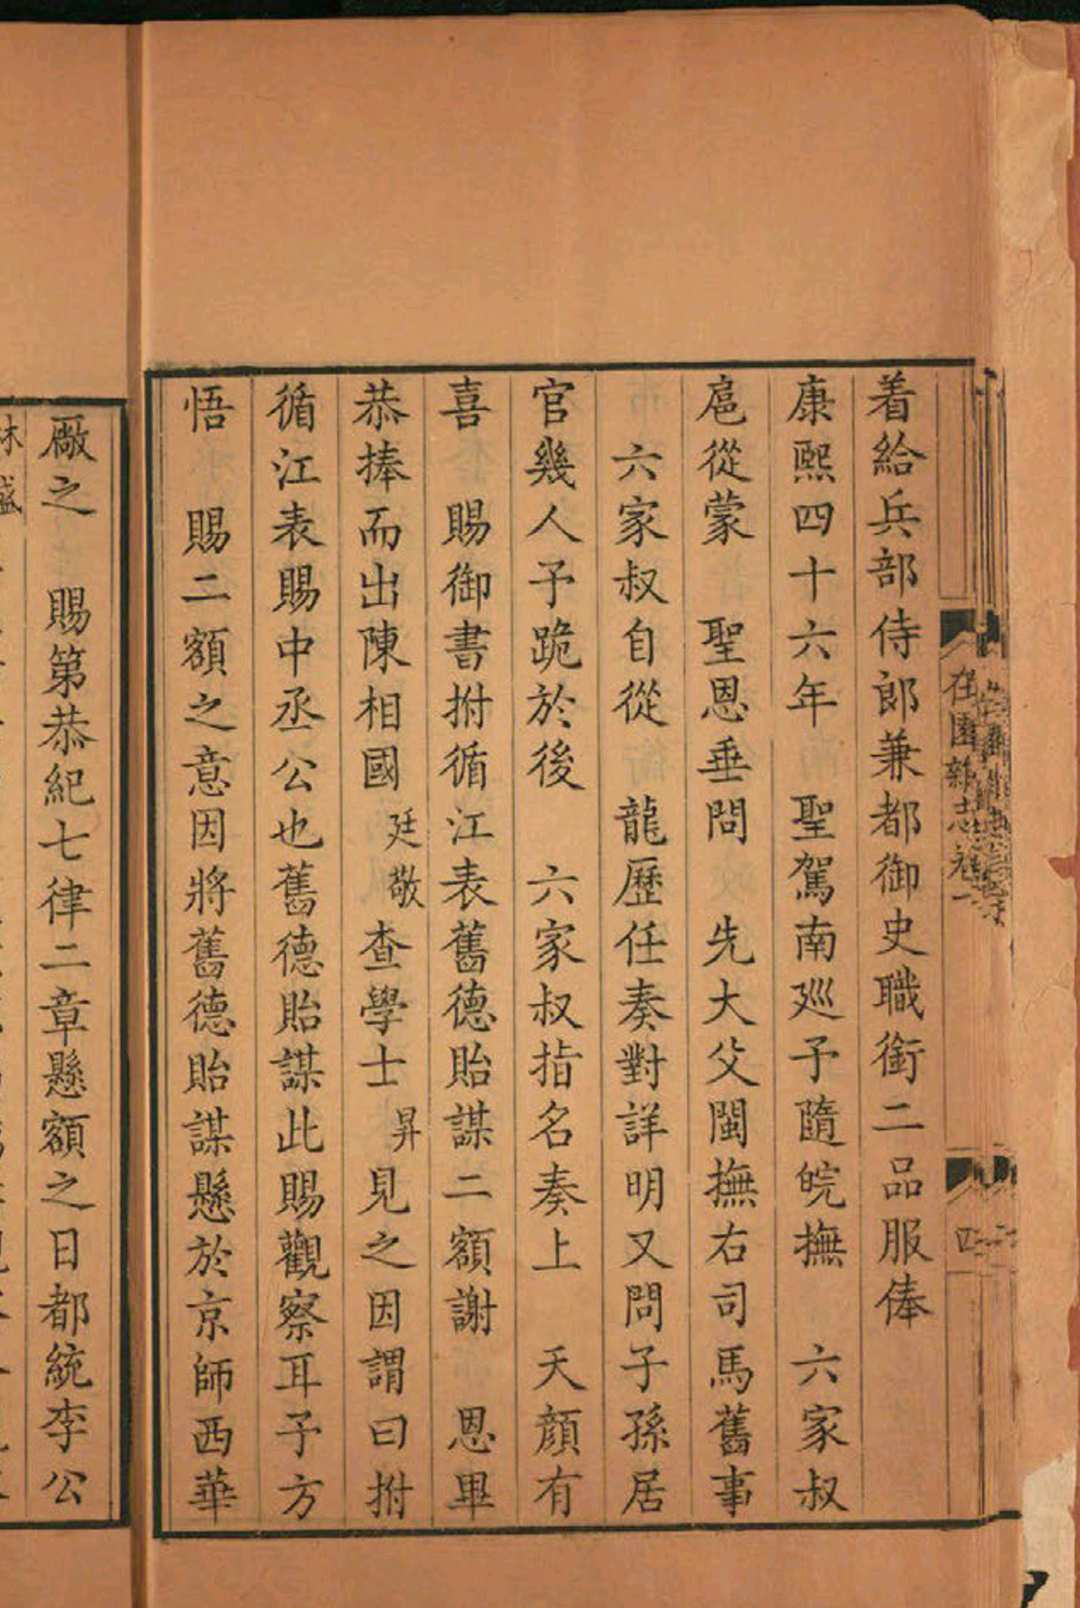 着給兵部侍郎兼都御史職銜二品服俸
康熙四十六年 聖駕南巡予隨皖撫 六家叔
扈從蒙 聖恩垂問 先大父閩撫右司馬舊事
六家叔自從 龍歷任奏對詳明又問子孫居
官幾人予跪於後 六家叔指名奏上 天顏有
喜 賜御書拊循江表舊德貽謀二額謝 恩畢
恭捧而出陳相國廷敬查學士昇見之因謂曰拊
循江表賜中丞公也舊德貽謀此賜觀察耳予方
悟 賜二額之意因將舊德貽謀懸於京師西華
廠之 賜第恭紀七律二章懸額之日都統李公
林盛
在園雜志卷一
四